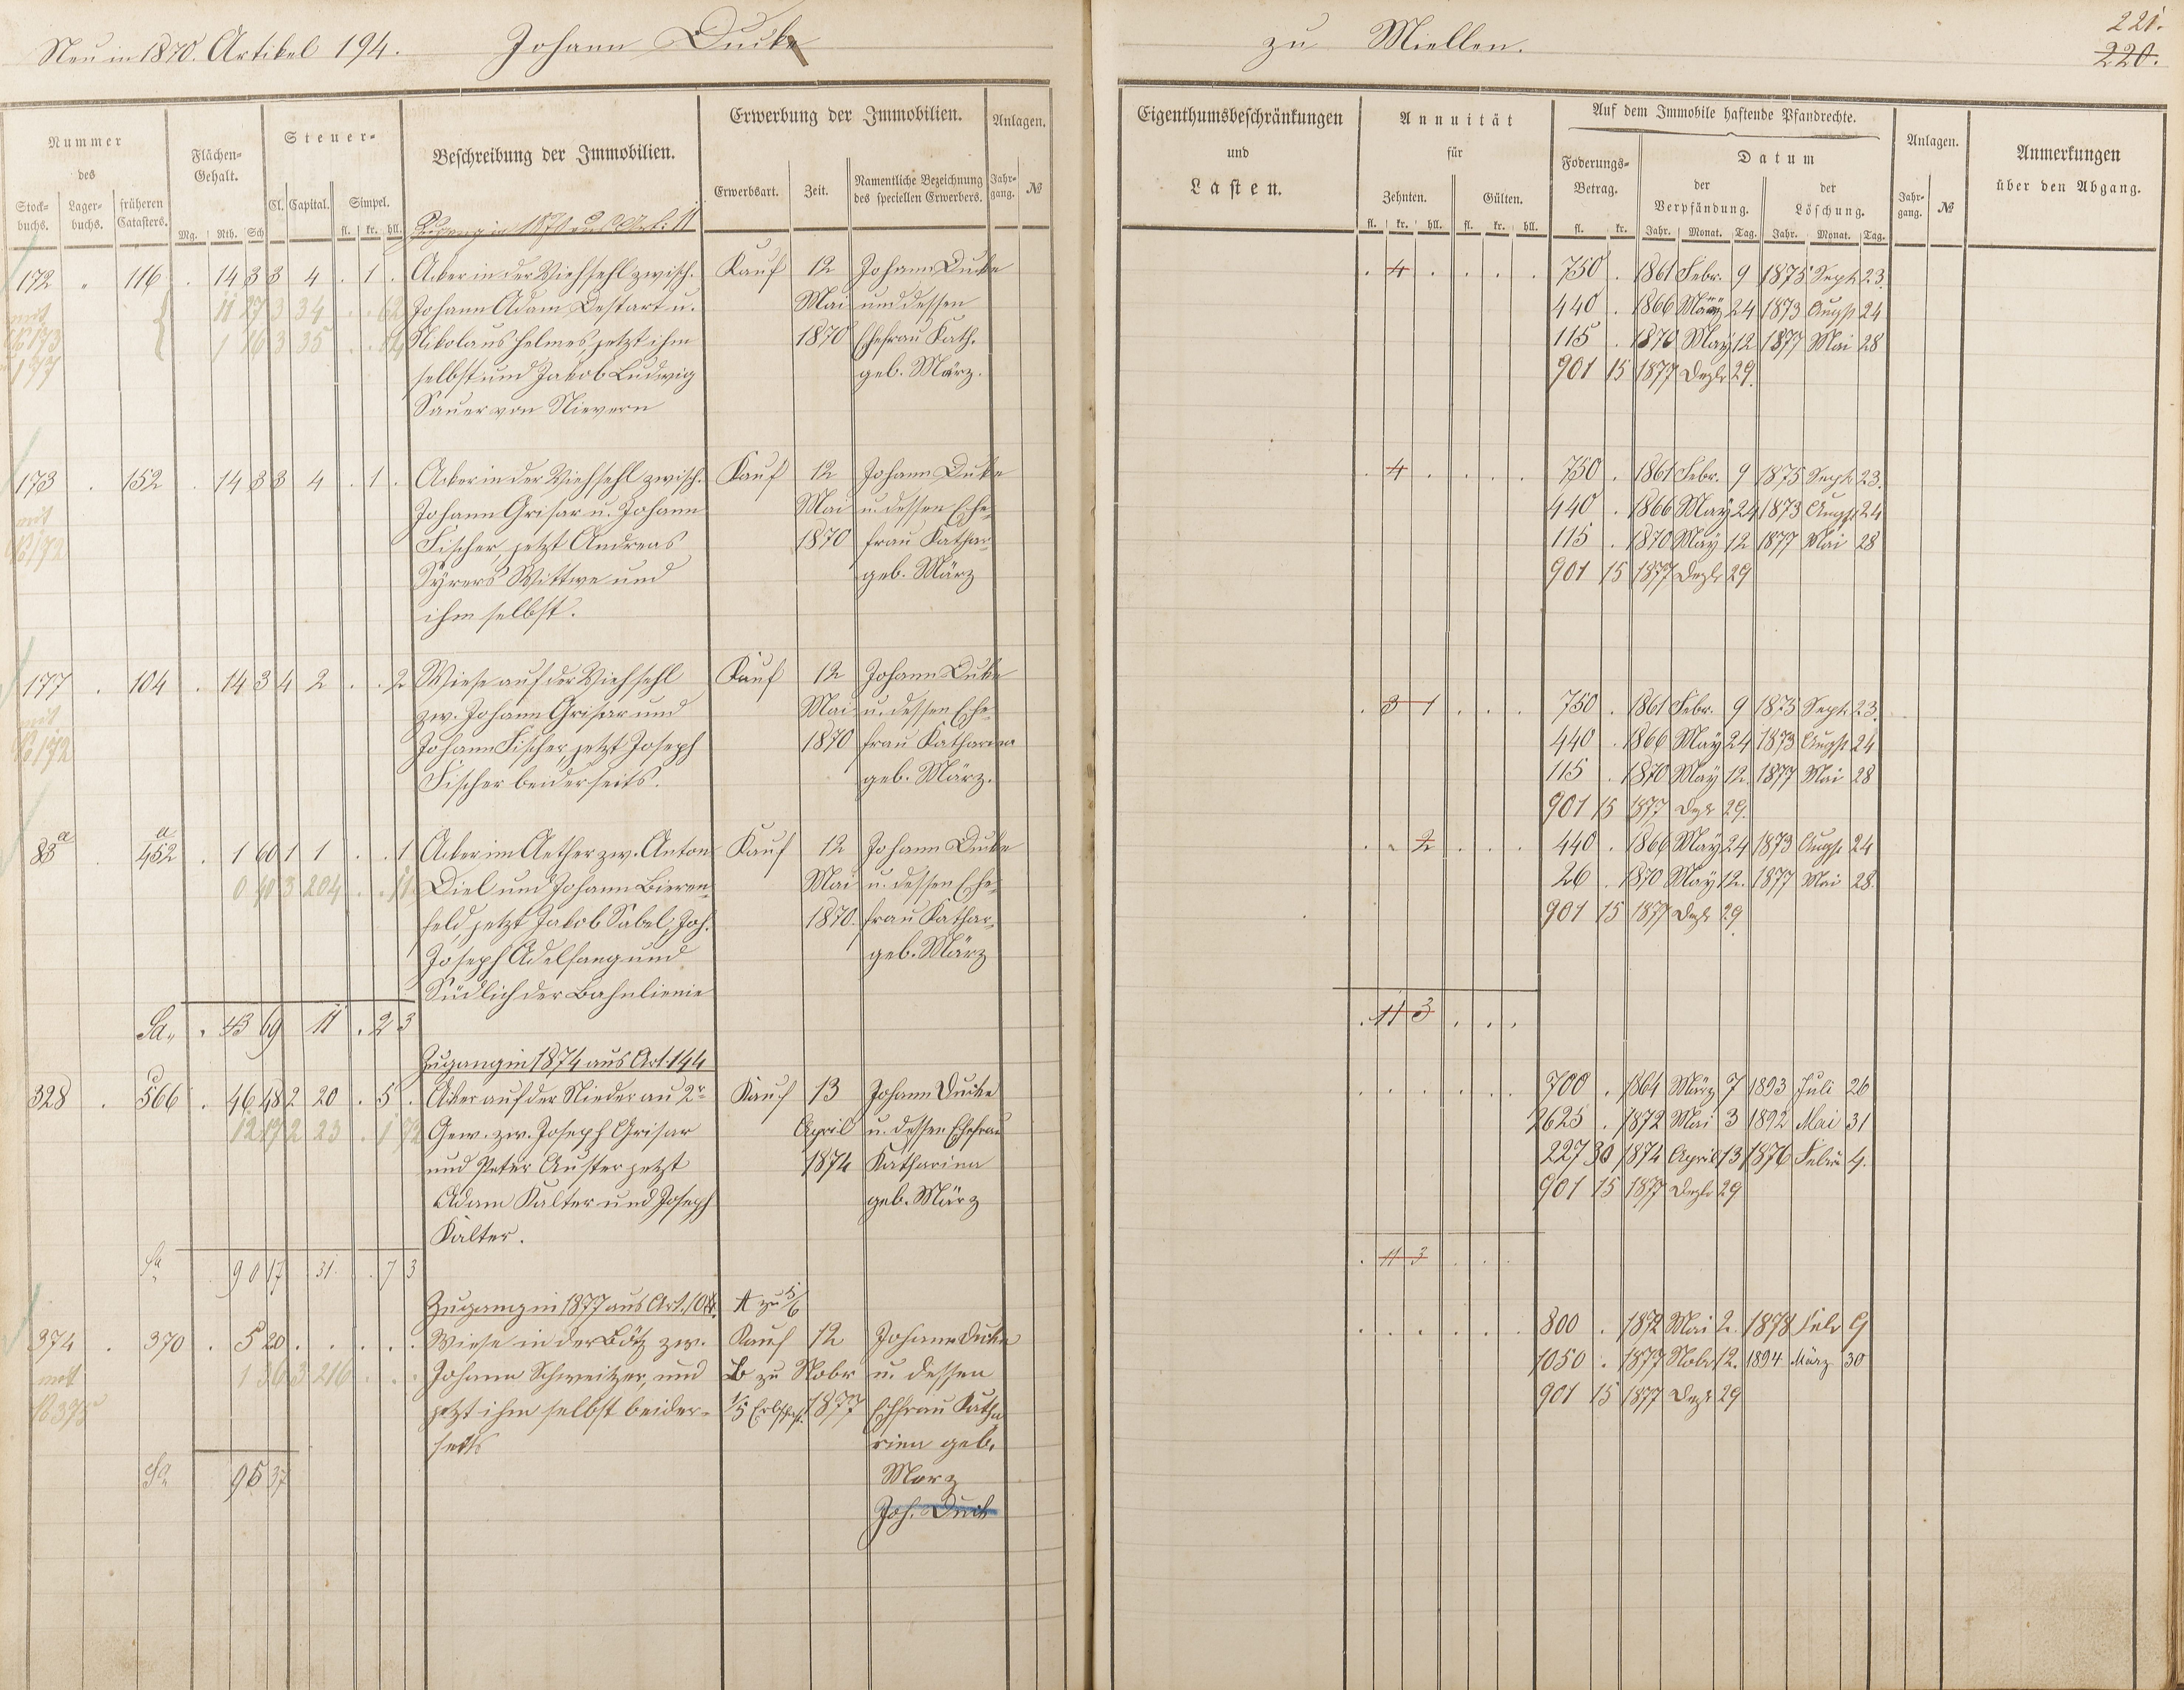 Neu in 1870. Artikel 194. Johann Ducke zu Miellen.
221.
220.
Nummer des
Stock-buchs. Lager-buchs. früheren Catasters.
Flächen-Gehalt.
Mg. Rth. Sch
Steuer-
Cl. Capital. Simpel.
fl. kr. hll.
Beschreibung der Immobilien.
Erwerbung der Immobilien.
Erwerbsart. Zeit. Namentliche Bezeichnung des speciellen Erwerbers.
Anlagen.
Jahr-gang. №
Eigenthumsbeschränkungen und Lasten.
Annuität für
Zehnten. Gülten.
fl. kr. hll. fl. kr. hll.
Auf dem Immobile haftende Pfandrechte.
Foderungs-Betrag.
fl. kr.
Datum
der Verpfändung. der Löschung.
Jahr. Monat. Tag. Jahr. Monat. Tag.
Anlagen.
Jahr-gang. №
Anmerkungen über den Abgang.
Zugang in 1870 aus Art. 11
172 " 116 . 14 3 3 4 . 1 . Acker in der Viehsehl zwisch. Kauf 12 Johann Ducke . 4 . . . . 750 . 1861 Febr. 9 1875 Sept 23.
mit 11 27 3 34 . . 62 Johann Adam Destart u. Mai und dessen 440 . 1866 März 24 1873 Augst 24
No 173 1 16 3 35 Nikolaus Helmes, jetzt ihm 1870 Ehefrau Kath. 115 . 1870 May 12 1877 Mai 28
177 selbst und Jakob Ludwig geb. März. 901 15 1877 Dezbr 29.
Sauer von Nievern
173 . 152 . 14 3 3 4 . 1 . Acker in der Viehsehl zwisch. Kauf 12 Johann Ducke . 4 . . . . 750 . 1861 Febr. 9 1875 Sept 23.
mit Johann Grisar u. Johann Mai u. dessen Ehe- 440 . 1866 May 24 1873 Augst 24
No 172 Fischer, jetzt Andreas 1870 frau Kathar. 115 . 1870 May 12 1877 Mai 28
Wittwe und geb. März 901 15 1877 Dezbr 29
ihm selbst.
177 . 104 . 14 3 4 2 . . 2 Wiese auf der Viehsehl Kauf 12 Johann Ducke
mit zw. Johann Grisar und Mai u. dessen Ehe- . 3 1 . . . 750 . 1861 Febr. 9 1875 Sept 23.
No 172 Johann Fischer, jetzt Joseph 1870 frau Katharina 440 . 1866 May 24 1873 Augst 24
Fischer beiderseits. geb. März. 115 . 1870 May 12. 1877 Mai 28
901 15 1877 Dezbr 29.
83a . 452a . 1 60 1 1 . . 1 Acker im Aether zw. Anton Kauf 12 Johann Ducke . . 2 . . . 440 . 1866 May 24 1873 Augst 24
0 40 3 204 . . 11 Diel und Johann Bieren- Mai u. dessen Ehe- 26 . 1870 May 12. 1877 Mai 28.
feld, jetzt Jakob Sabel, Joh. 1870. frau Kathar. 901 15 1877 Dezbr 29
Joseph Adelfang und geb. März
Südlich der Bahnlienie
Sa. . 43 69 11 . 2 3 . 11 3 . . .
Zugang in 1874 aus Art. 144
328 . 566 . 46 48 2 20 . 5 . Acker auf der Niederau 2r Kauf 13 Johann Ducke . . . . . . 700 . 1864 März 7 1893 Juli 26
12 17 2 23 . 1 72 Gew. zw. Joseph Grisar April u. dessen Ehefrau 2625 . 1872 Mai 3 1892 Mai 31
und Peter Auster jetzt 1874 Katharina 227 30 1874 April 13 1876 Febru 4.
Adam Kalter und Joseph geb. März 901 15 1877 Dezbr 29
Kalter.
Sa. 90 17 31 . 7 3 . 11 3 . . .
Zugang in 1877 aus Art. A zu 5/6
374 . 370 . 5 20 . . . . . Wiese in der Bötz zw. Kauf 12 Johann Ducke . . . . . . 800 . 1872 Mai 2. 1878 Febr 9
mit 1 36 3 216 . . . Johann Schweitzer, und B zu Nobr u. dessen 1050 . 1877 Nobr 12. 1894 März 30
No 375 jetzt ihm selbst beider- 1/5 Erbschaft. 1877 Ehfrau Katha 901 15 1877 Dezbr 29
seits rina geb.
Sa 95 37 März
Joh. Duck